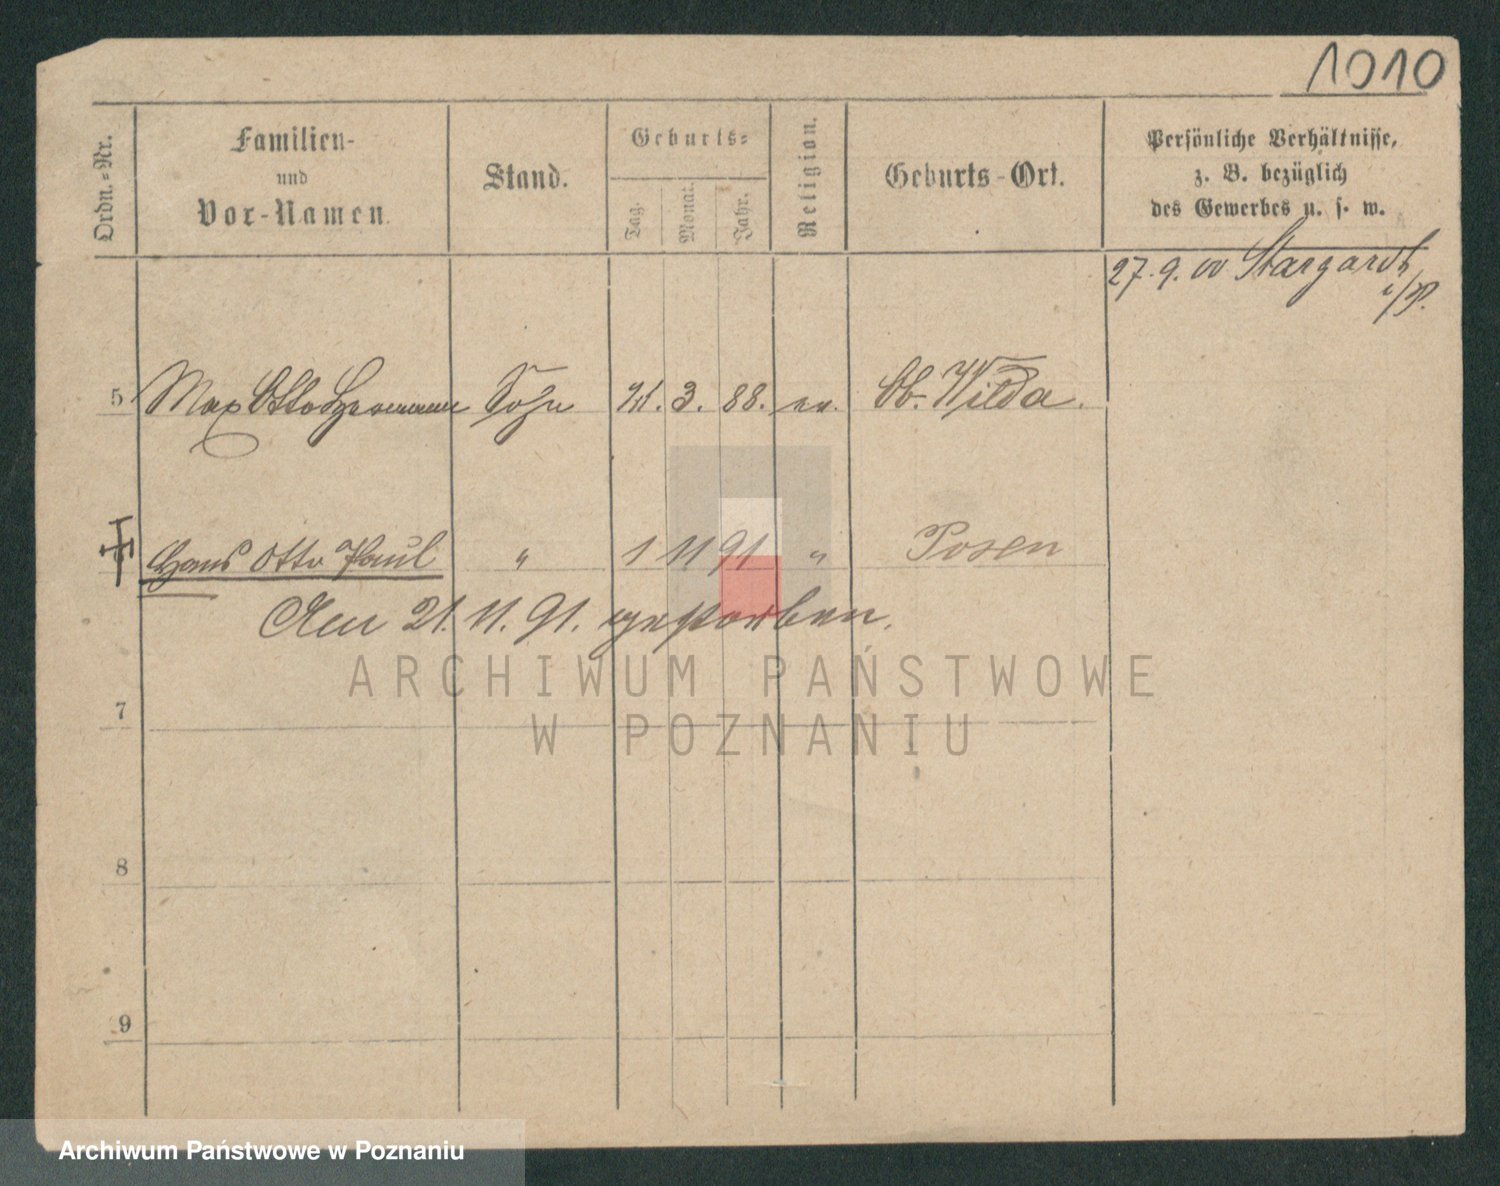 1010
Ordn.-Nr.
Familien-
und
Vor-Namen.
Stand.
Geburts-
Tag.
Monat.
Jahr.
Religion.
Geburts-Ort.
Persönliche Verhältnisse,
z. B. bezüglich
des Gewerbes u. s. w.
27. 9. 00 Stargardt
i/P.
5 Max Otto Hermann Sohn 21. 3. 88. ev. Ob. Wilda.
Hans Otto Paul " 1 11 91 " Posen
Am 21. 11. 91. gestorben.
7
8
9
ARCHIWUM PAŃSTWOWE
W POZNANIU
Archiwum Państwowe w Poznaniu